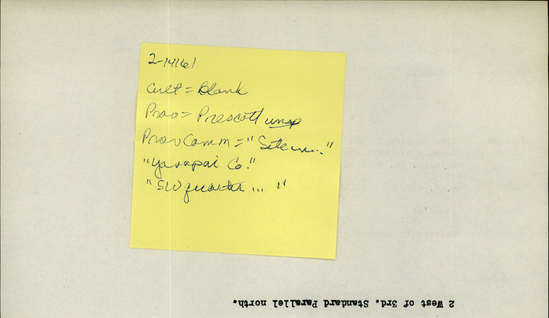 2-14161
Cult = Blank
Prov = Prescott
Prov Comm = "Site ..."
"Yavapai Co."
"SW quarter ... "
2 West of 3rd. Standard Parallel north.